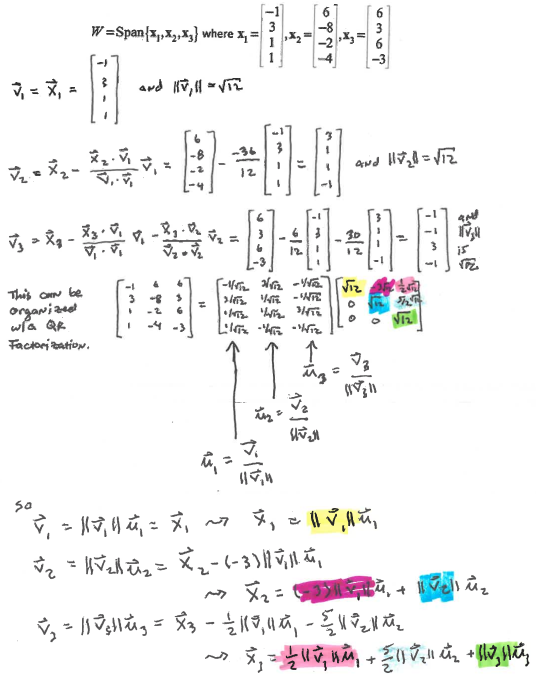 W = Span{x₁,x₂,x₃} where x₁ = [-1 3 1 1], x₂ = [6 -8 -2 -4], x₃ = [6 3 6 -3]
v⃗₁ = x⃗₁ = [-1 3 1 1] and ||v⃗₁|| = √12
v⃗₂ = x⃗₂ - (x⃗₂·v⃗₁)/(v⃗₁·v⃗₁) v⃗₁ = [6 -8 -2 -4] - -36/12 [-1 3 1 1] = [3 1 1 -1] and ||v⃗₂|| = √12
v⃗₃ = x⃗₃ - (x⃗₃·v⃗₁)/(v⃗₁·v⃗₁) v⃗₁ - (x⃗₃·v⃗₂)/(v⃗₂·v⃗₂) v⃗₂ = [6 3 6 -3] - 6/12 [-1 3 1 1] - 30/12 [3 1 1 -1] = [-1 -1 3 -1] and ||v⃗₃|| is √12
This can be
organized
w/a QR
Factorization.
[-1 6 6
3 -8 3
1 -2 6
1 -4 -3]
=
[-1/√12 3/√12 -1/√12
3/√12 1/√12 -1/√12
1/√12 1/√12 3/√12
1/√12 -1/√12 -1/√12]
[√12 -3√12 ½√12
0 √12 5/2√12
0 0 √12]
u⃗₃ = v⃗₃/||v⃗₃||
u⃗₂ = v⃗₂/||v⃗₂||
u⃗₁ = v⃗₁/||v⃗₁||
so
v⃗₁ = ||v⃗₁||u⃗₁ = x⃗₁ ⇝ x⃗₁ = ||v⃗₁||u⃗₁
v⃗₂ = ||v⃗₂||u⃗₂ = x⃗₂ - (-3)||v⃗₁||u⃗₁
⇝ x⃗₂ = (-3)||v⃗₁||u⃗₁ + ||v⃗₂||u⃗₂
v⃗₃ = ||v⃗₃||u⃗₃ = x⃗₃ - ½||v⃗₁||u⃗₁ - 5/2||v⃗₂||u⃗₂
⇝ x⃗₃ = ½||v⃗₁||u⃗₁ + 5/2||v⃗₂||u⃗₂ + ||v⃗₃||u⃗₃